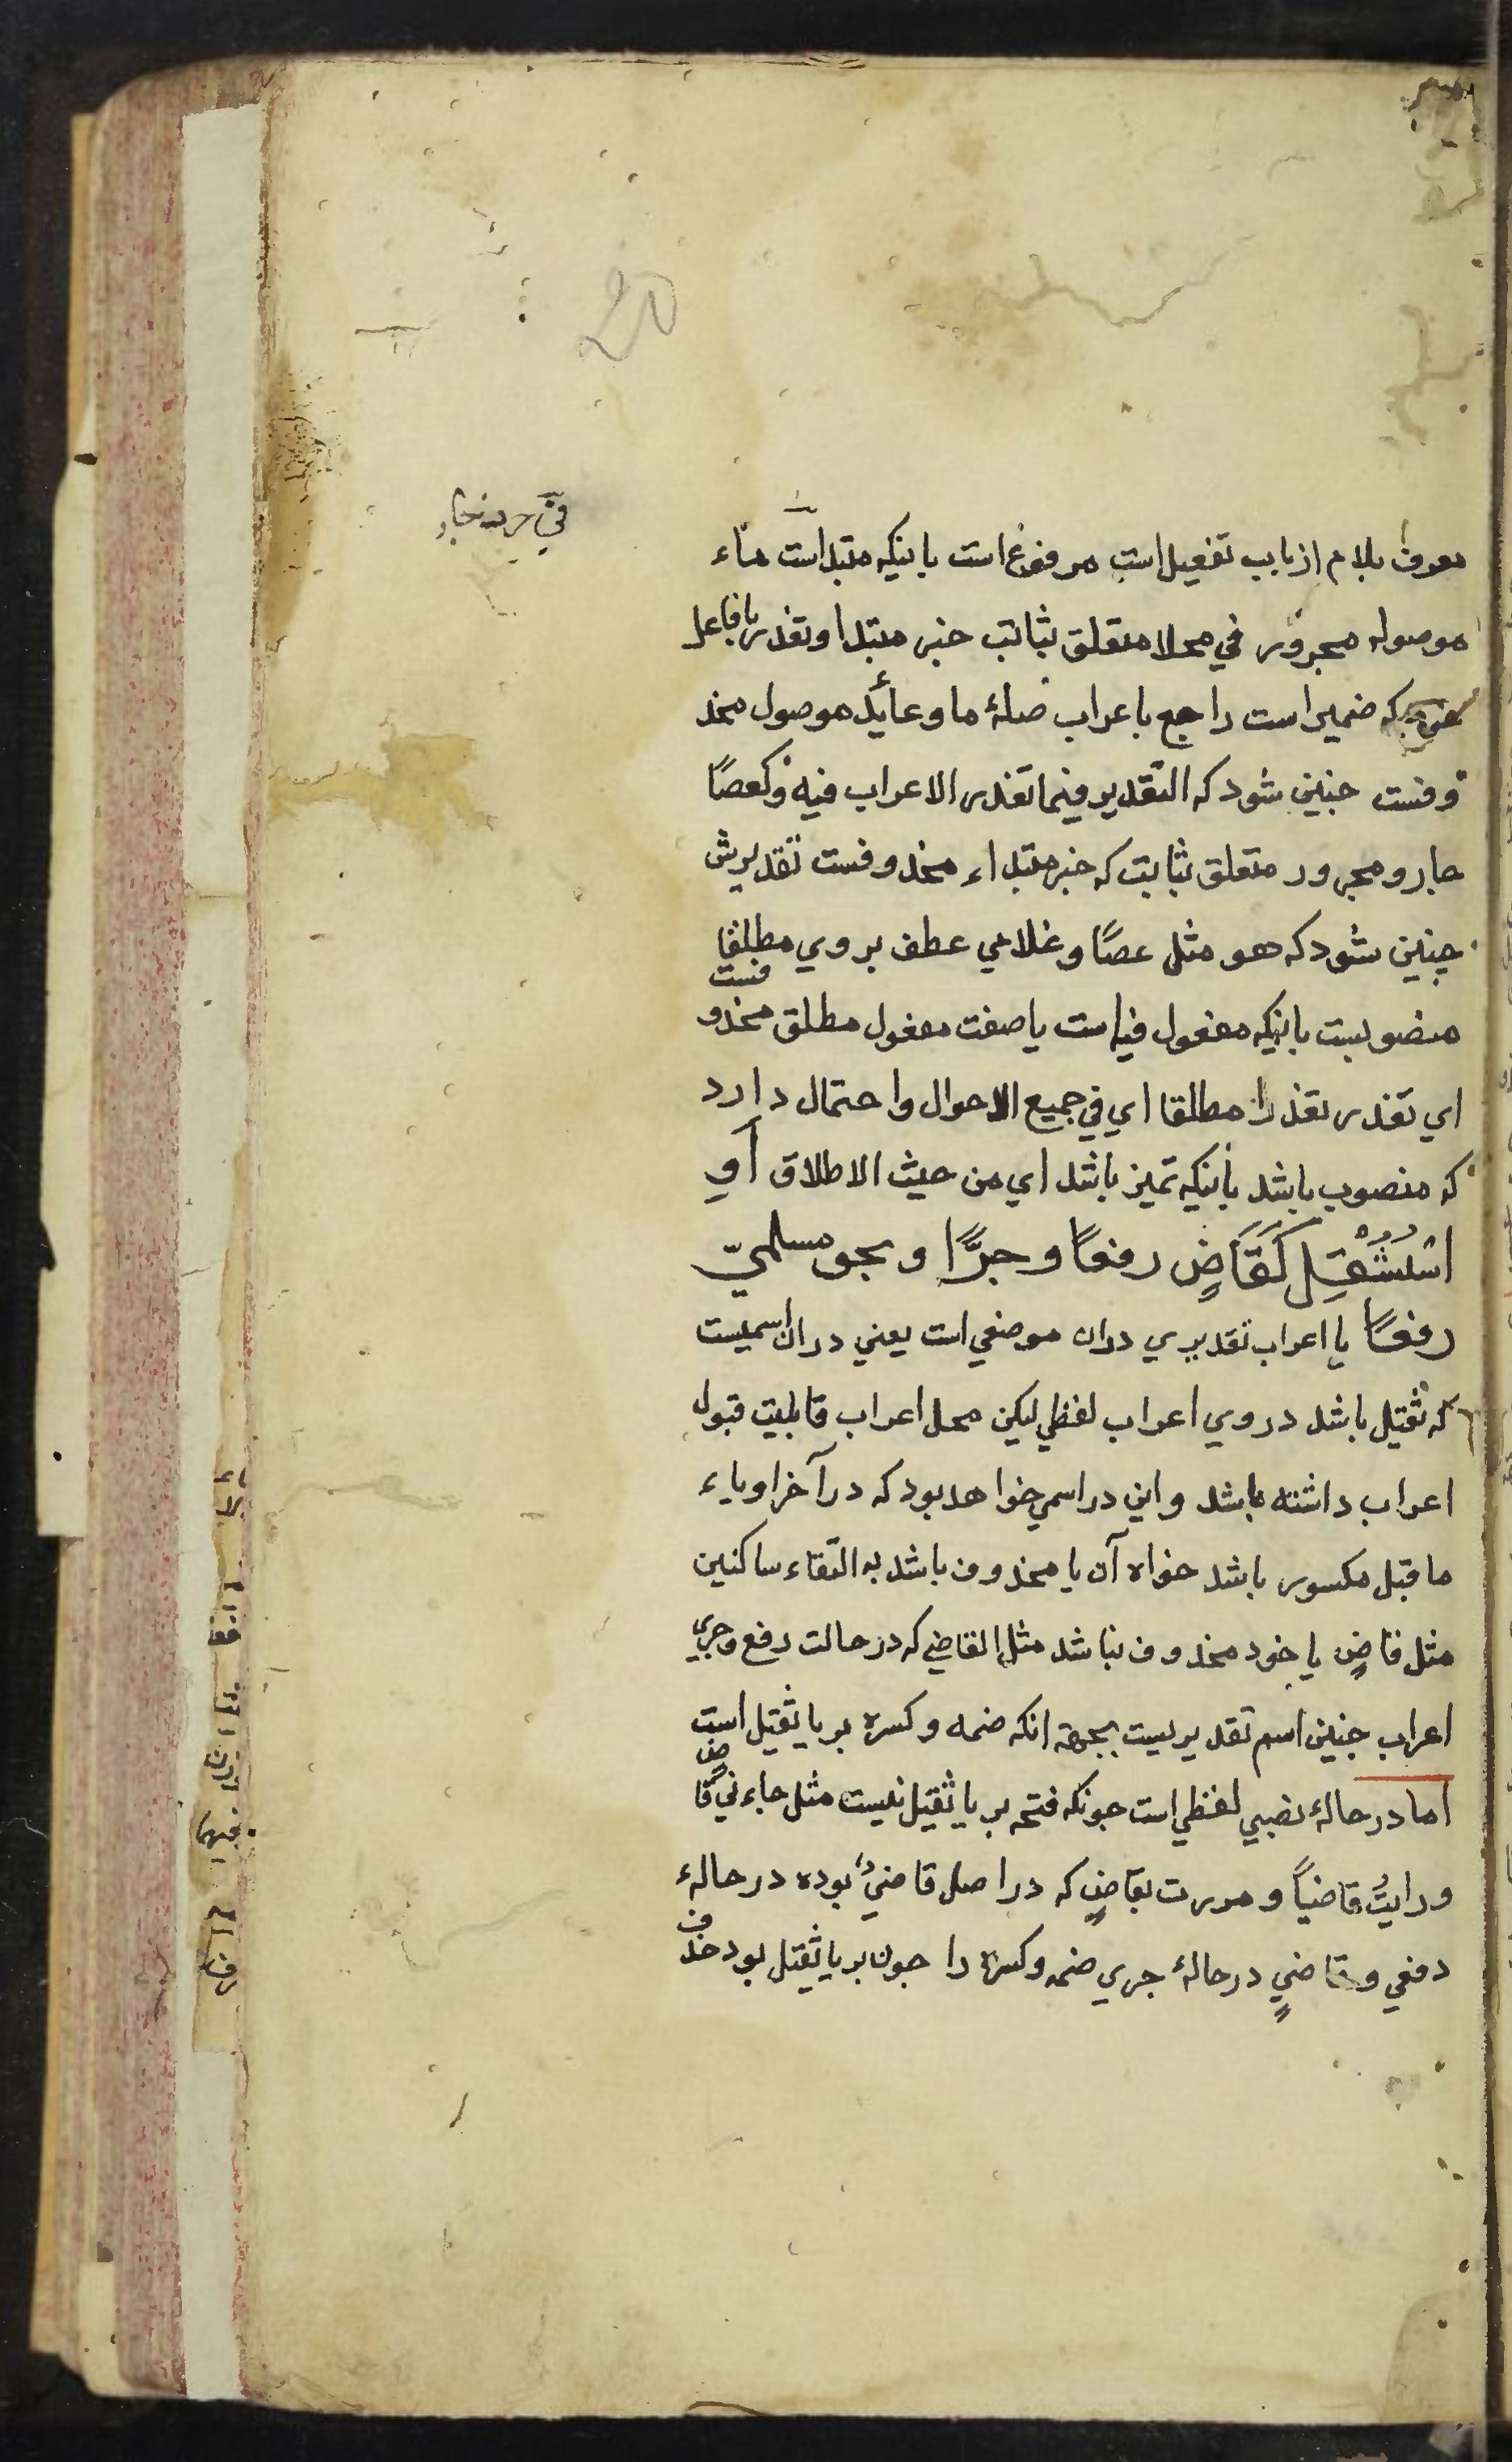 معرف بلام از باب تفعیل است مرفوع است باینکه مبتداست ماء
موصوله مجرور في محلا متعلق بثابت خبر مبتدا وتعذر با فاعل
که ضمیر است راجع باعراب صلهٔ ما و عائد موصول محذ
وفست جنین شود که التقدیر فیما تعذر الاعراب فیه و کعصًا
جار و مجرور متعلق بثابت که خبر مبتداء محذوفست تقدیرش
جنین شود که هو مثل عصًا و غلامي عطف بر وي مطلقا
منصوبست باینکه مفعول فیه است یا صفت مفعول مطلق محذوفست
اي تعذر تعذرا مطلقا اي في جمیع الاحوال واحتمال دارد
که منصوب باشد باینکه تمیز باشد اي من حیث الاطلاق أوِ
اسْتُثْقِلَ كَقَاضٍ رفعًا و جرًّا و نحو مسلميّ
رفعًا یا اعراب تقدیري دران موضعي است یعني دران اسمیست
که ثقیل باشد در وي اعراب لفظي لیکن محل اعراب قابلیت قبول
اعراب داشته باشد و این در اسمي خواهد بود که در آخر او یاء
ما قبل مکسور باشد خواه آن یا محذوف باشد به التقاء ساکنین
مثل قاضٍ یا خود محذوف نباشد مثل القاضي که در حالت رفع و جري
اعراب جنین اسم تقدیریست بجهة انکه ضمه و کسره بر یا ثقیل است
اما در حالهٔ نصبي لفظي است جونکه فتحه بر یا ثقیل نیست مثل جاءني قاضٍ
ورایتُ قاضیاً و مررت بقاضٍ که در اصل قاضيٌ بوده در حالهٔ
رفعي و قاضيٍ در حالهٔ جري ضمه و کسره را جون بر یا ثقیل بود حذف